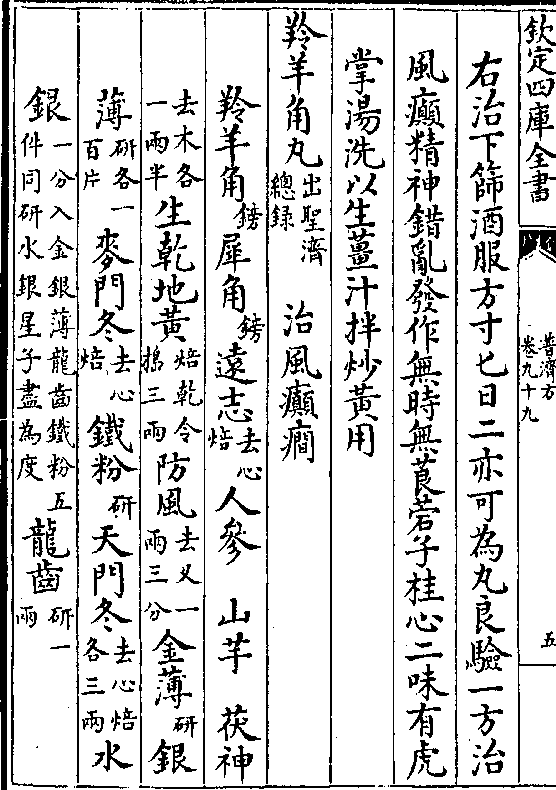 欽定四庫全書
普濟方
卷九十九
五
右治下篩酒服方寸匕日二亦可為丸良驗一方治
風癲精神錯亂發作無時無莨菪子桂心二味有虎
掌湯洗以生薑汁拌炒黃用
羚羊角丸出聖濟總録 治風癲癇
羚羊角鎊犀角鎊遠志去心焙人參 山芋 茯神
去木各一兩半生乾地黃焙乾令搗三兩防風去叉一兩三分金薄研銀
薄研各一百片麥門冬去心焙鐵粉研天門冬去心焙各三兩水
銀一分入金銀薄龍齒鐵粉五件同研水銀星子盡為度龍齒研一兩